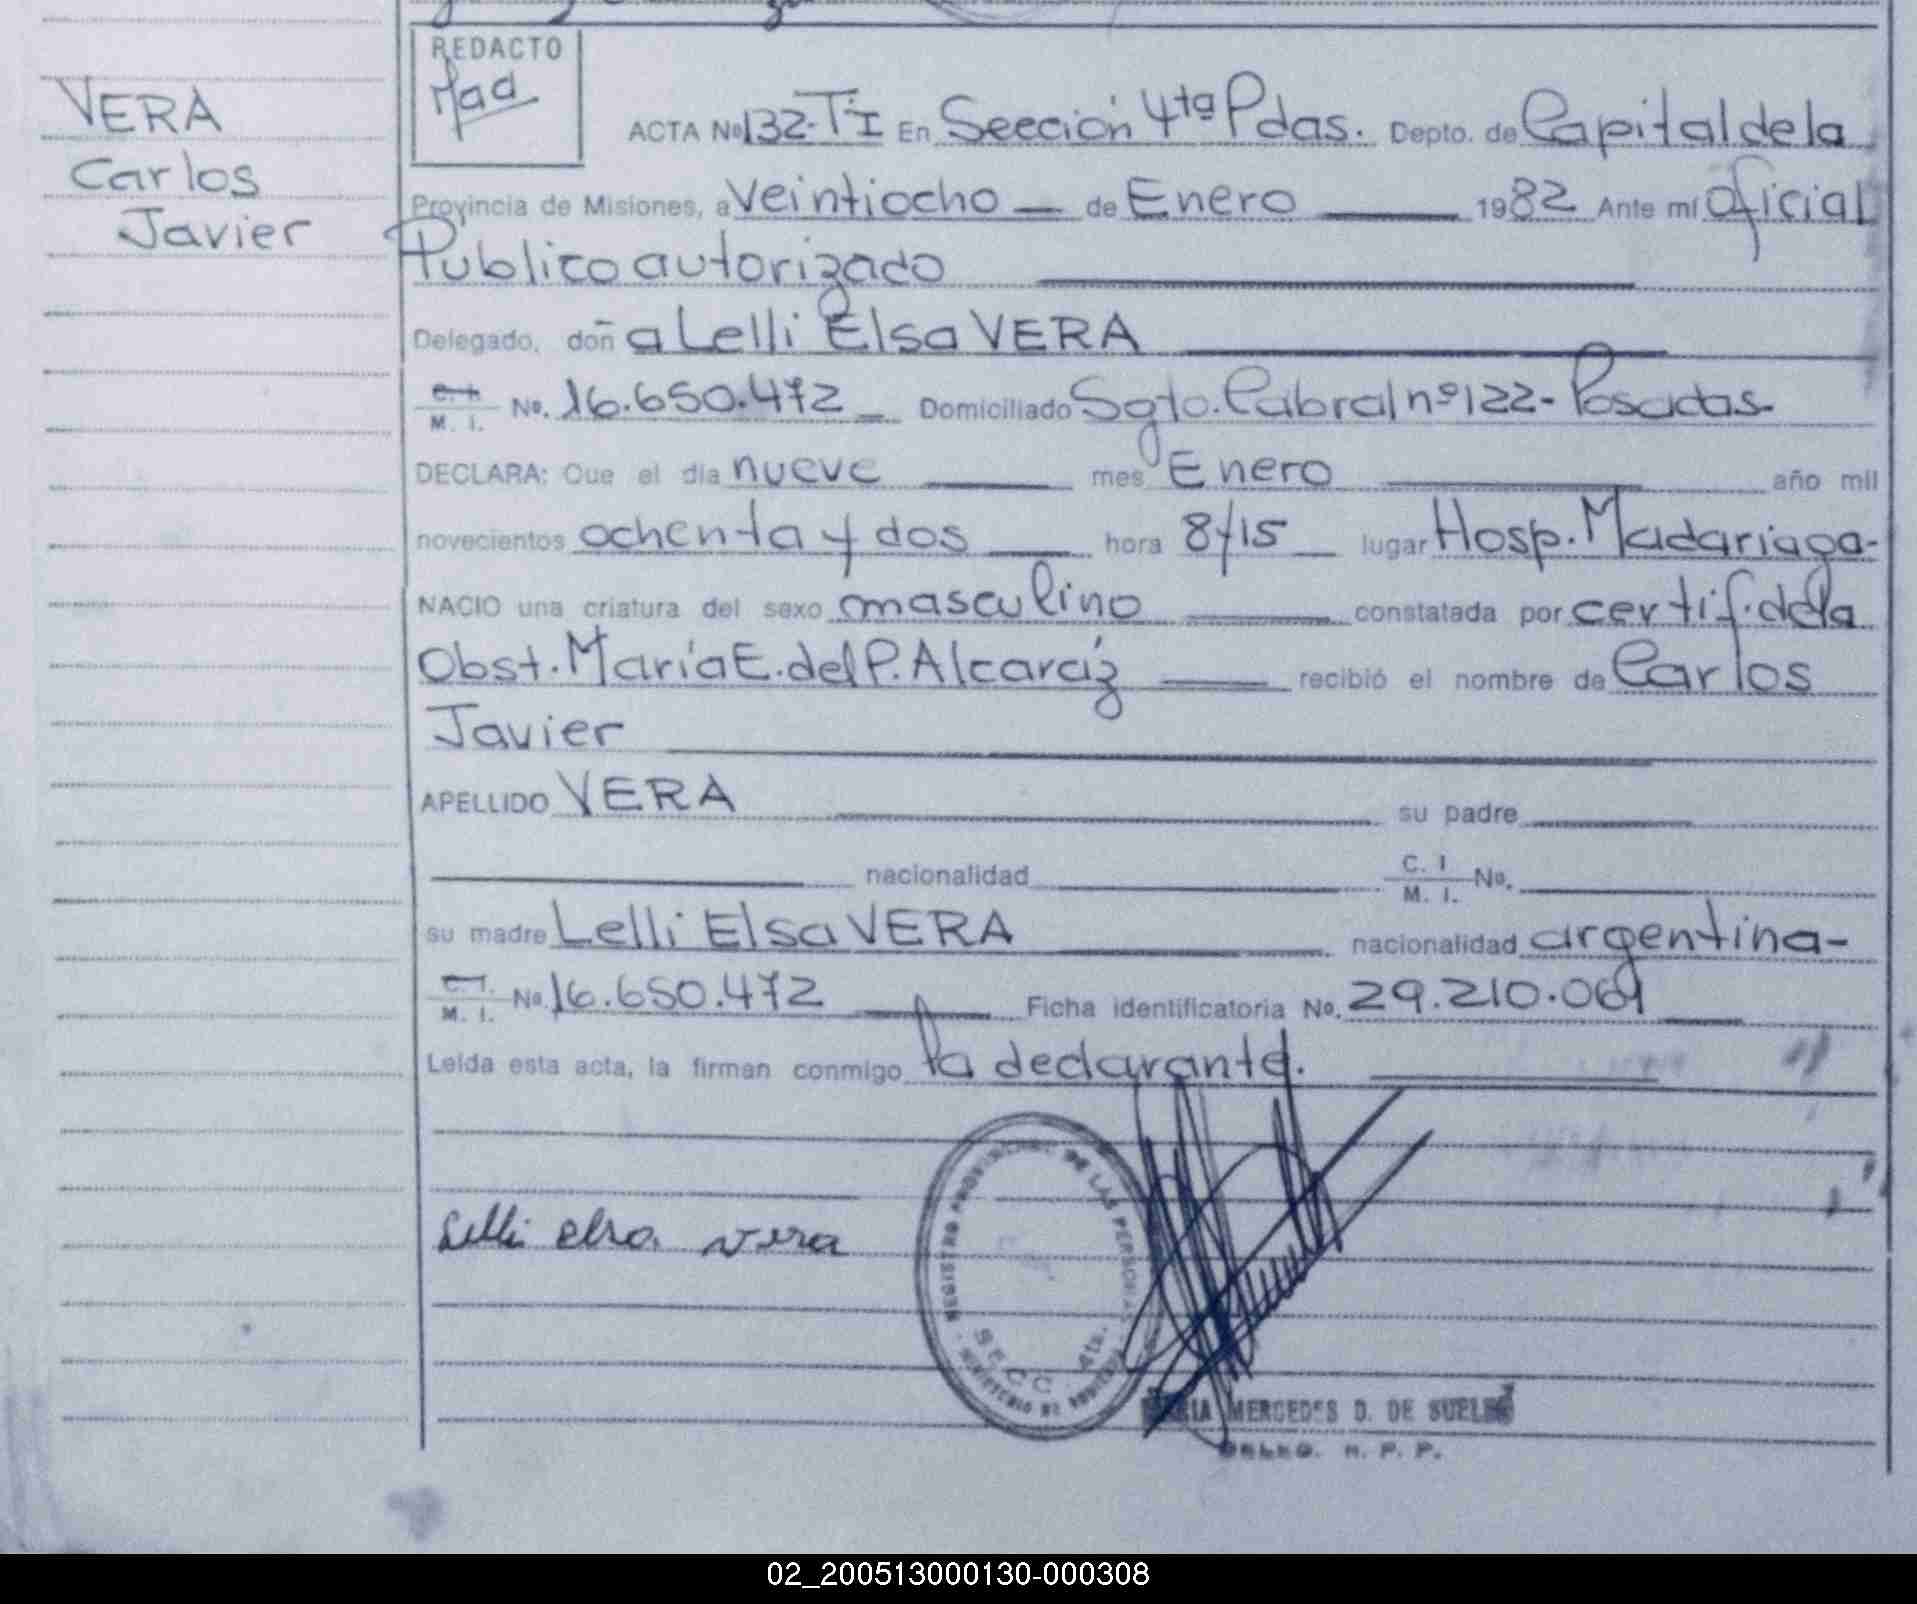 REDACTO
VERA
Carlos
Javier
ACTA No 132-TI En Sección 4ta Pdas. Depto. de Capital de la
Provincia de Misiones, a Veintiocho — de Enero 1982 Ante mí oficial
Publico autorizado
Delegado, doña Lelli Elsa VERA
M. I. No. 16.650.472 Domiciliado Sgto. Cabral nº 122 - Posadas
DECLARA: Que el día nueve mes Enero año mil
novecientos ochenta y dos hora 8y15 lugar Hosp. Madariaga-
NACIO una criatura del sexo masculino constatada por certif. de la
Obst. María E. del P. Alcaráz recibió el nombre de Carlos
Javier
APELLIDO VERA su padre
nacionalidad C. I. M. I. No.
su madre Lelli Elsa VERA nacionalidad argentina-
C. I. M. I. No. 16.650.472 Ficha identificatoria No. 29.210.069
Leída esta acta, la firman conmigo la declarante.
Lelli elsa vera
REGISTRO PROVINCIAL DE LAS PERSONAS
SECC. 4ta.
MARIA MERCEDES D. DE SUELDO
DELEG. R. P. P.
02_200513000130-000308